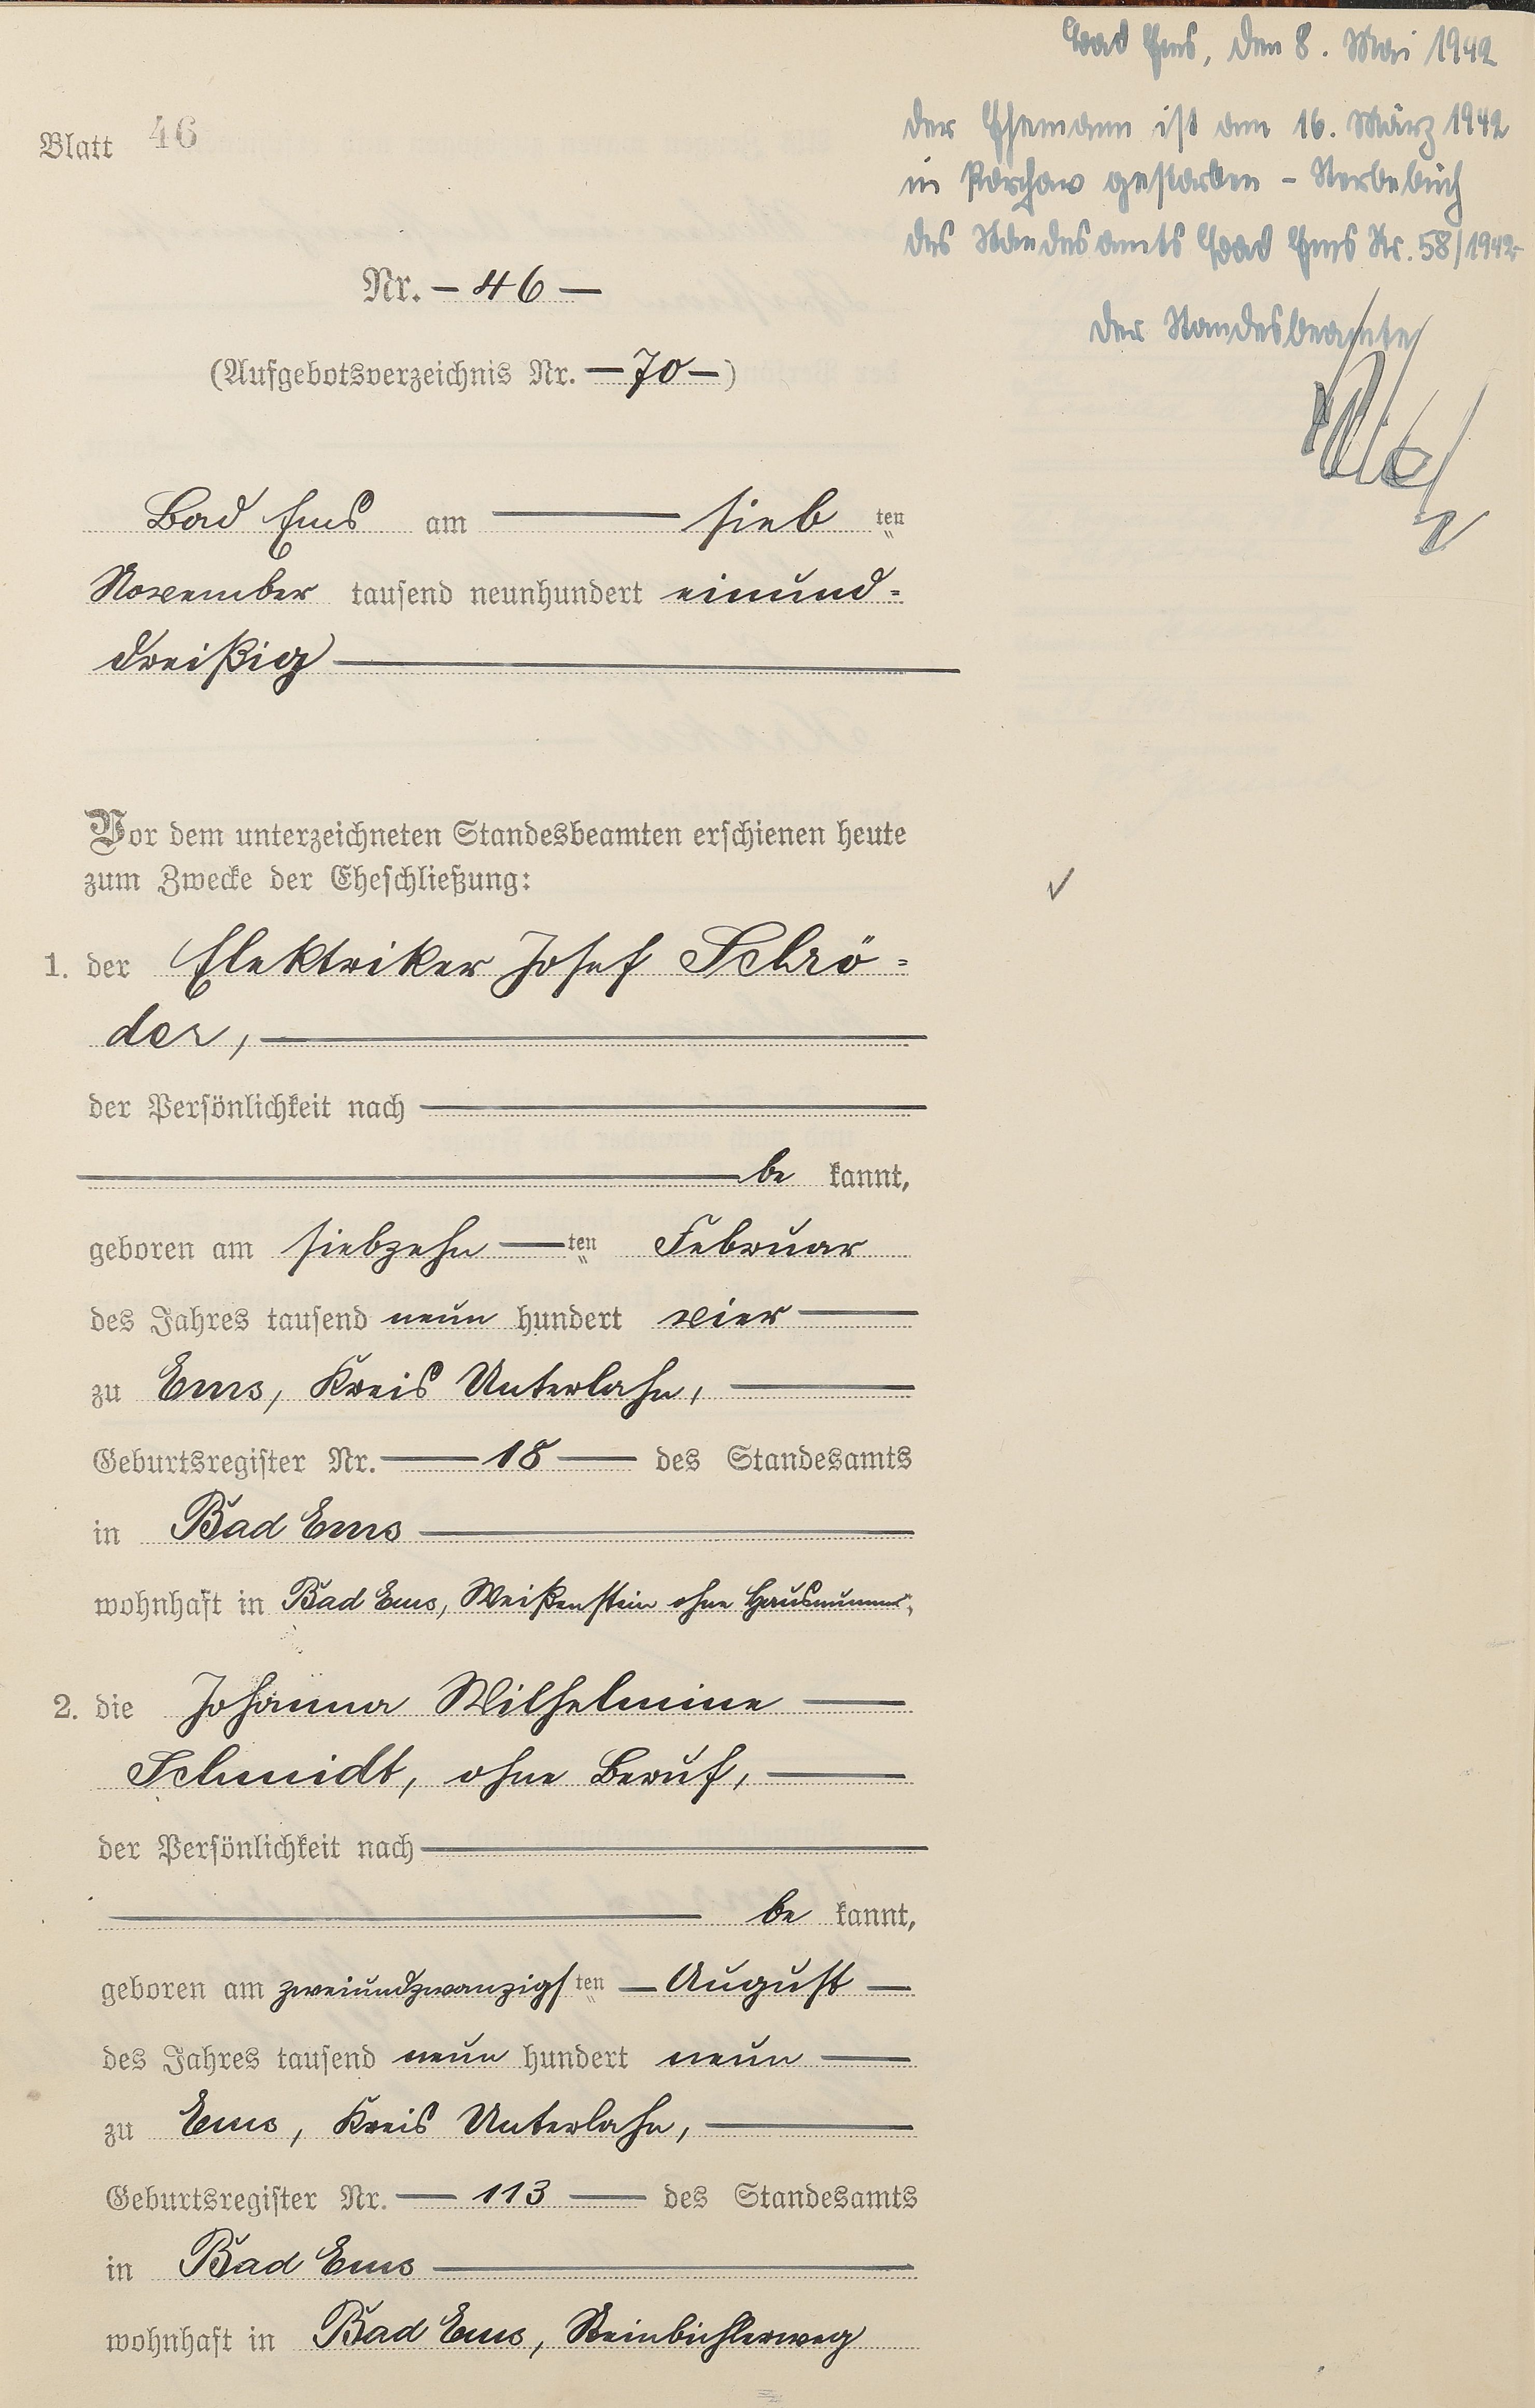 Bad Ems, den 8. Mai 1942
der Ehemann ist am 16. März 1942
in Porchow gestorben - Sterbebuch
des Standesamts Bad Ems Nr. 58/1942
der Standesbeamte
Blatt 46
Nr. - 46 -
(Aufgebotsverzeichnis Nr. - 70 -)
Bad Ems am sieb ten
November tausend neunhundert einund=
dreißig
Vor dem unterzeichneten Standesbeamten erschienen heute
zum Zwecke der Eheschließung:
1. der Elektriker Josef Schrö=
der,
der Persönlichkeit nach
be kannt,
geboren am siebzehn ten Februar
des Jahres tausend neun hundert vier
zu Ems, Kreis Unterlahn,
Geburtsregister Nr. 18 des Standesamts
in Bad Ems
wohnhaft in Bad Ems, Weißenstein ohne Hausnummer,
2. die Johanna Wilhelmine
Schmidt, ohne Beruf,
der Persönlichkeit nach
be kannt,
geboren am zweiundzwanzigs ten August
des Jahres tausend neun hundert neun
zu Ems, Kreis Unterlahn,
Geburtsregister Nr. 113 des Standesamts
in Bad Ems
wohnhaft in Bad Ems,